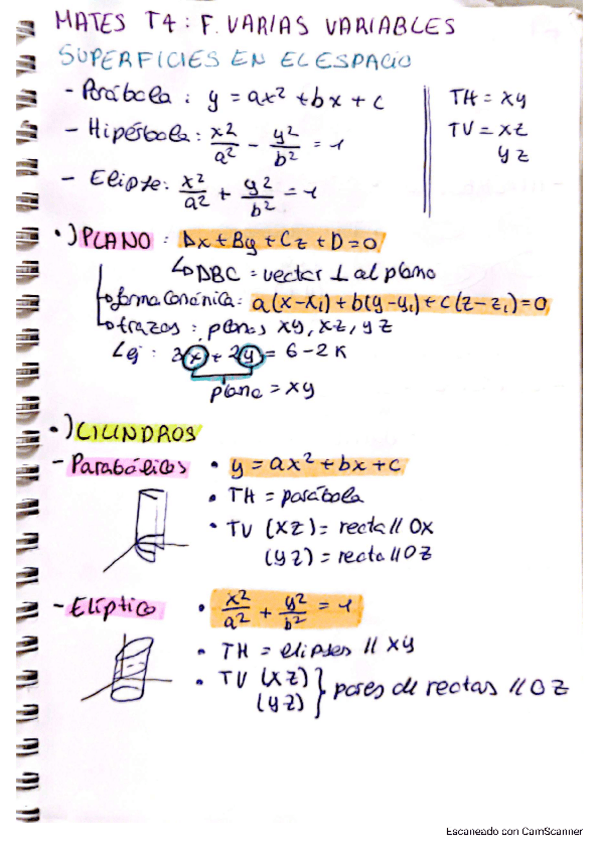 MATES T4: F. VARIAS VARIABLES
SUPERFICIES EN EL ESPACIO
- Parábola : y = ax² + bx + c
TH = xy
- Hipérbola: x²/a² - y²/b² = 1
TV = xz
yz
- Elipse: x²/a² + y²/b² = 1
·) PLANO : Ax + By + Cz + D = 0
↳ DBC = vector ⊥ al plano
forma canónica: a(x-x₁) + b(y-y₁) + c(z-z₁) = 0
trazos : planos xy, xz, yz
↳ ej : 3x + 2y = 6 - 2K
plano = xy
·) CILINDROS
- Parabólicos · y = ax² + bx + c
· TH = parábola
· TV (xz) = recta // OX
(yz) = recta // OZ
- Elíptico · x²/a² + y²/b² = 1
· TH = elipses // xy
· TV (xz) } pares de rectas // OZ
(yz)
Escaneado con CamScanner